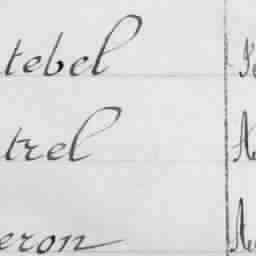 tebel
trel
eron